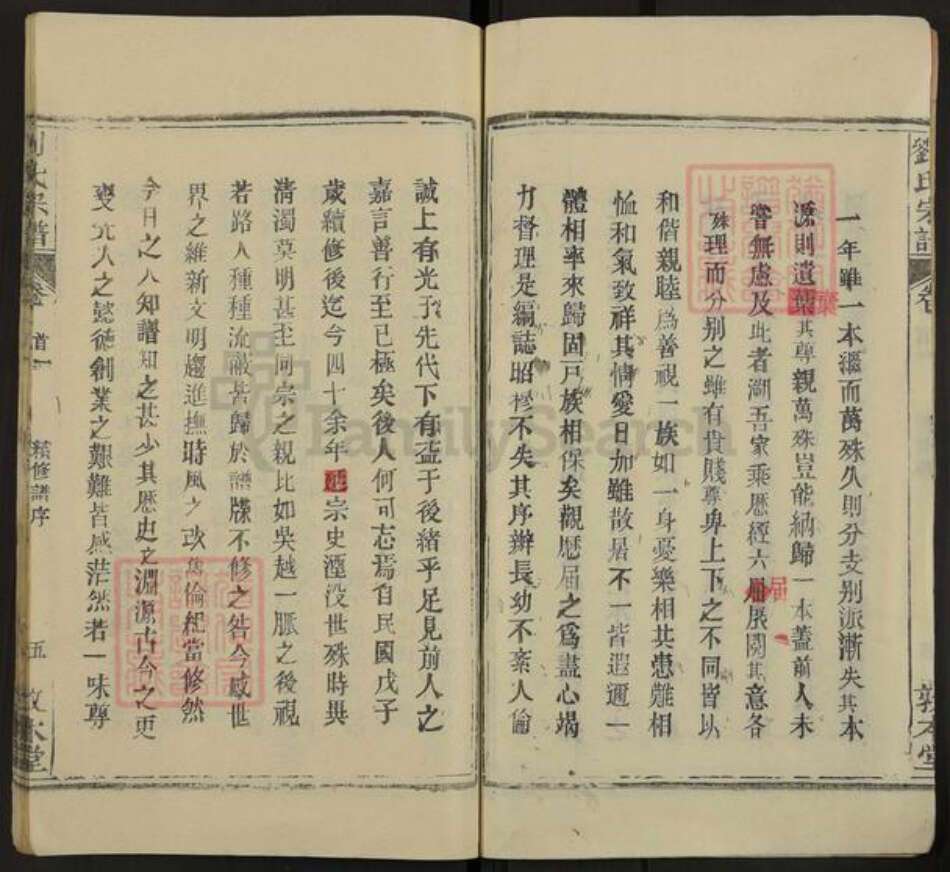 劉氏宗譜
卷
敦本堂
一年雖一本溫而萬殊久則分支别派漸失其本
源則遺棄其尊親萬殊豈能納歸一本蓋前人未
嘗無慮及此者溯吾家乘歷經六屆展閱其意各
殊理而分别之雖有貴賤尊卑上下之不同皆以
和偕親睦爲善視一族如一身憂樂相共患難相
恤和氣致祥其情愛日加雖散居不一皆遐邇一
體相率來歸固戸族相保矣觀歷屆之爲盡心竭
力督理是編誌昭穆不失其序辦長幼不紊人倫
誠上有光于先代下有益于後緒乎足見前人之
嘉言善行至已極矣後人何可忘焉自民國戊子
歲續修後迄今四十余年 宗史湮没世殊時異
淸濁莫明甚至同宗之親比如吳越一脈之後視
若路人種種流敝皆歸於譜牒不修之咎今感世
界之維新文明趨進撫時風之改爲倫紀當修然
今日之人知譜知之甚少其歷史之淵源古今之更
变先人之懿德創業之艱難皆感茫然若一味尊
劉氏宗譜
卷首一
續修譜序
五
敦本堂
FamilySearch